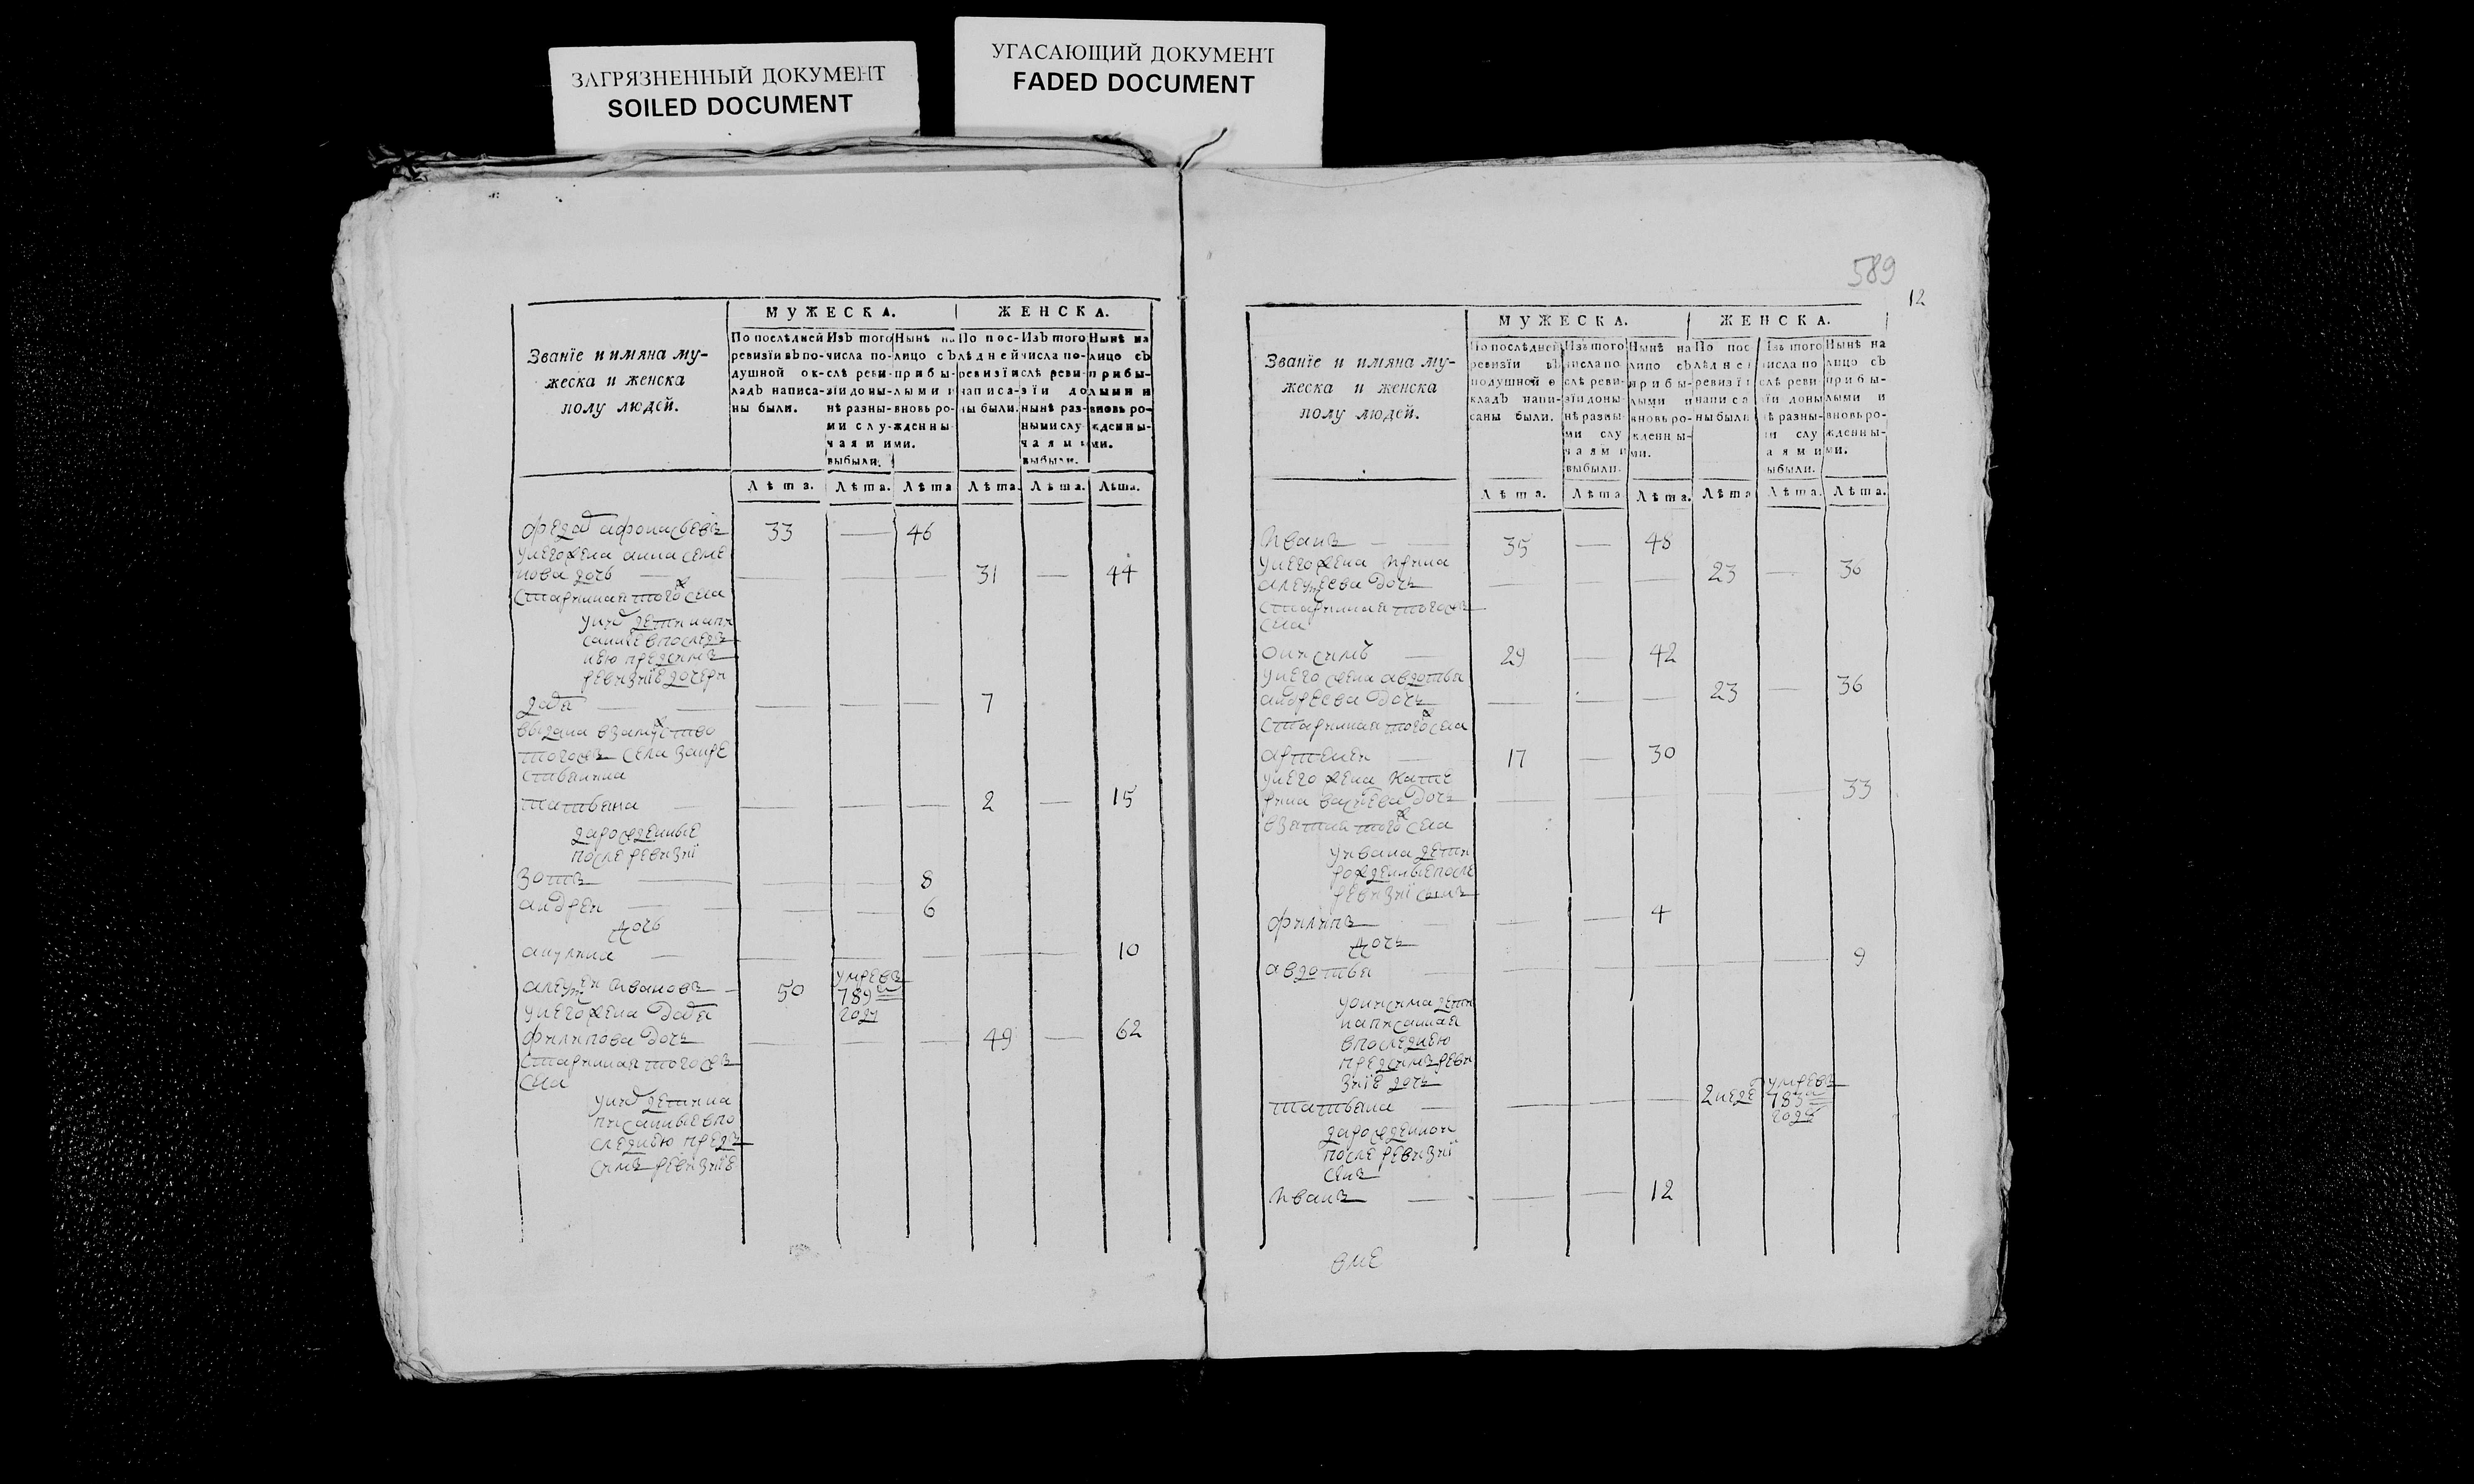 ЗАГРЯЗНЕННЫЙ ДОКУМЕНТ
SOILED DOCUMENT
УГАСАЮЩИЙ ДОКУМЕНТ
FADED DOCUMENT
МУЖЕСКА. ЖЕНСКА.
Званїе и имяна му-
жеска и женска
полу людей.
По послѣдней
ревизїи въ по-
душной ок-
ладъ написа-
ны были.
Изъ того
числа по-
слѣ реви-
зїи доны-
нѣ разны-
ми слу-
чаями
выбыли.
Нынѣ на
лицо съ
прибы-
лыми и
вновь ро-
жденны-
ми.
По пос-
лѣдней
ревизїи
написа-
ны были.
Изъ того
числа по-
слѣ реви-
зїи до
нынѣ раз-
ными слу
чаями
выбыли.
Нынѣ на
лицо съ
прибы-
лыми и
вновь ро-
жденны-
ми.
Лѣта. Лѣта. Лѣта Лѣта. Лѣта. Лѣта.
федот афонасьевъ 33 — 46
унего жена анна семе
нова дочь 31 — 44
старинная того ж села
уних дети напи
санные впослед
нею пред симъ
ревизïе дочери
7
выдана взамужство
тогожъ села закре
татьяна 2 — 15
зарожденные
после ревизиï
зотъ 8
андреи 6
дочь
акулина 10
алексеи Ивановъ 50 умревъ
789м
году
унего жена
филипова дочь 49 — 62
старинная тогожъ
села
уних дети на
писанные впо
следнею предъ
симъ ревизïе
589
12
МУЖЕСКА. ЖЕНСКА.
Званїе и имяна му-
жеска и женска
полу людей.
По послѣдней
ревизїи въ
подушной о
кладъ напи-
саны были.
Изъ того
числа по
слѣ реви-
зїи доны-
нѣ разны-
ми слу
чаями
выбыли.
Нынѣ на
лицо съ
прибы-
лыми и
вновь ро-
жденны-
ми.
По пос
лѣдней
ревизїи
написа
ны были
Изъ того
числа по
слѣ реви
зїи доны
нѣ разны-
ми слу
чаями
выбыли.
Нынѣ на
лицо съ
прибы-
лыми и
вновь ро-
жденны-
ми.
Лѣта. Лѣта Лѣта. Лѣта Лѣта. Лѣта.
Иванъ 35 — 48
унего жена Ирина
алексеева дочь 23 — 36
старинная тогожъ
села
онисимъ 29 — 42
унего жена авдотья
андреева дочь 23 — 36
старинная того ж села
артемеи 17 — 30
унего жена Кате
рина дочь 33
взятая того ж села
уивана дети
рожденные после
ревизиï сынъ
филипъ 4
дочь
авдотья 9
уонисима дети
написанная
впоследнею
предсимъ реви
зиïе дочь
татьяна 2 неде умревъ
783м
году
зарожденнои
после ревизиï
сынъ
Иванъ 12
вме